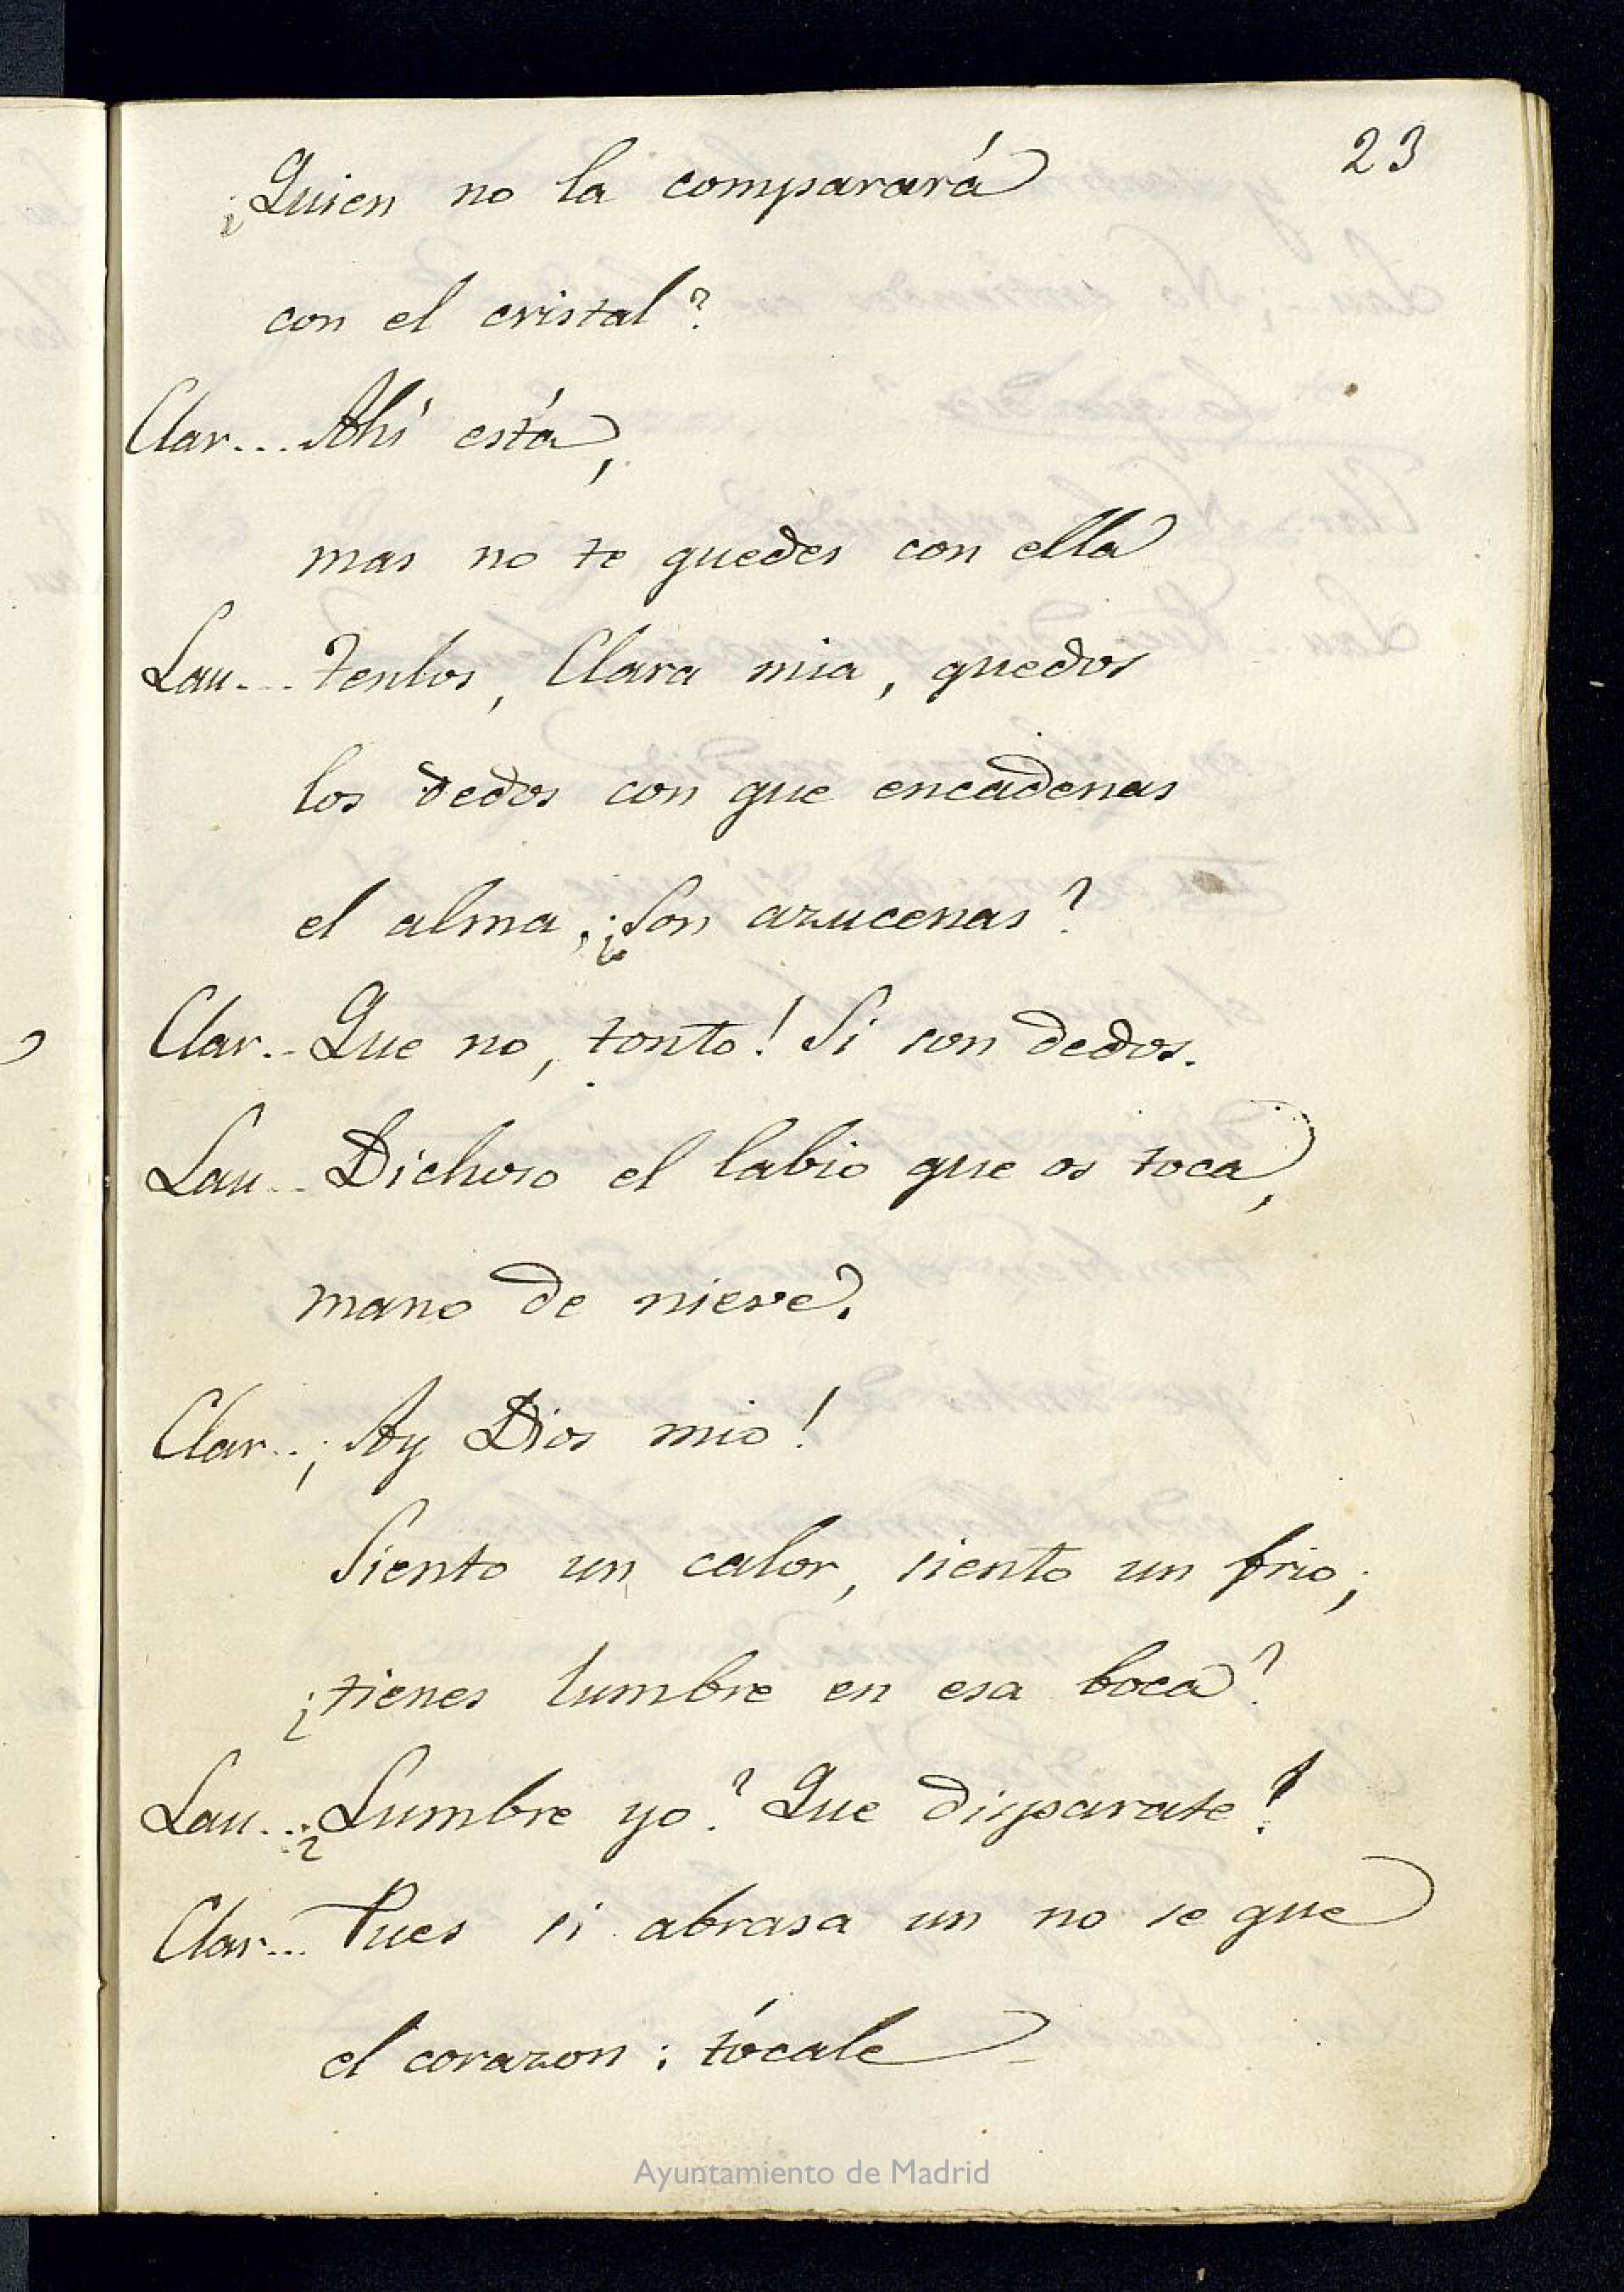 23
¿Quien no la comparará
con el cristal?
Clar... Ahí está,
mas no te quedes con ella
Lau... Tenlos, Clara mia, quedos
los dedos con que encadenas
el alma, ¿Son azucenas?
Clar.. Que no, tonto! Si son dedos.
Lau... Dichoso el labio que os toca,
mano de nieve.
Clar.. ¡Ay Dios mio!
Siento un calor, siento un frio;
¿tienes lumbre en esa boca?
Lau... ¿Lumbre yo? Que disparate!
Clar... Pues si abrasa un no se que
el corazon: tócale
Ayuntamiento de Madrid